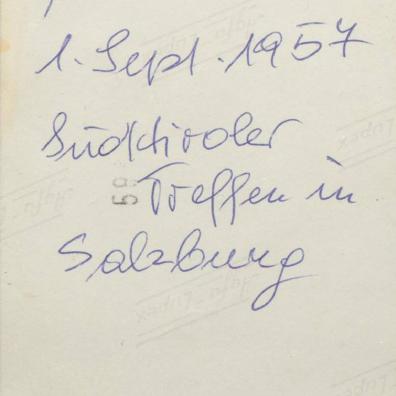 1. Sept. 1957
Südtiroler
59
Treffen in
Salzburg
Agfa-Lupex